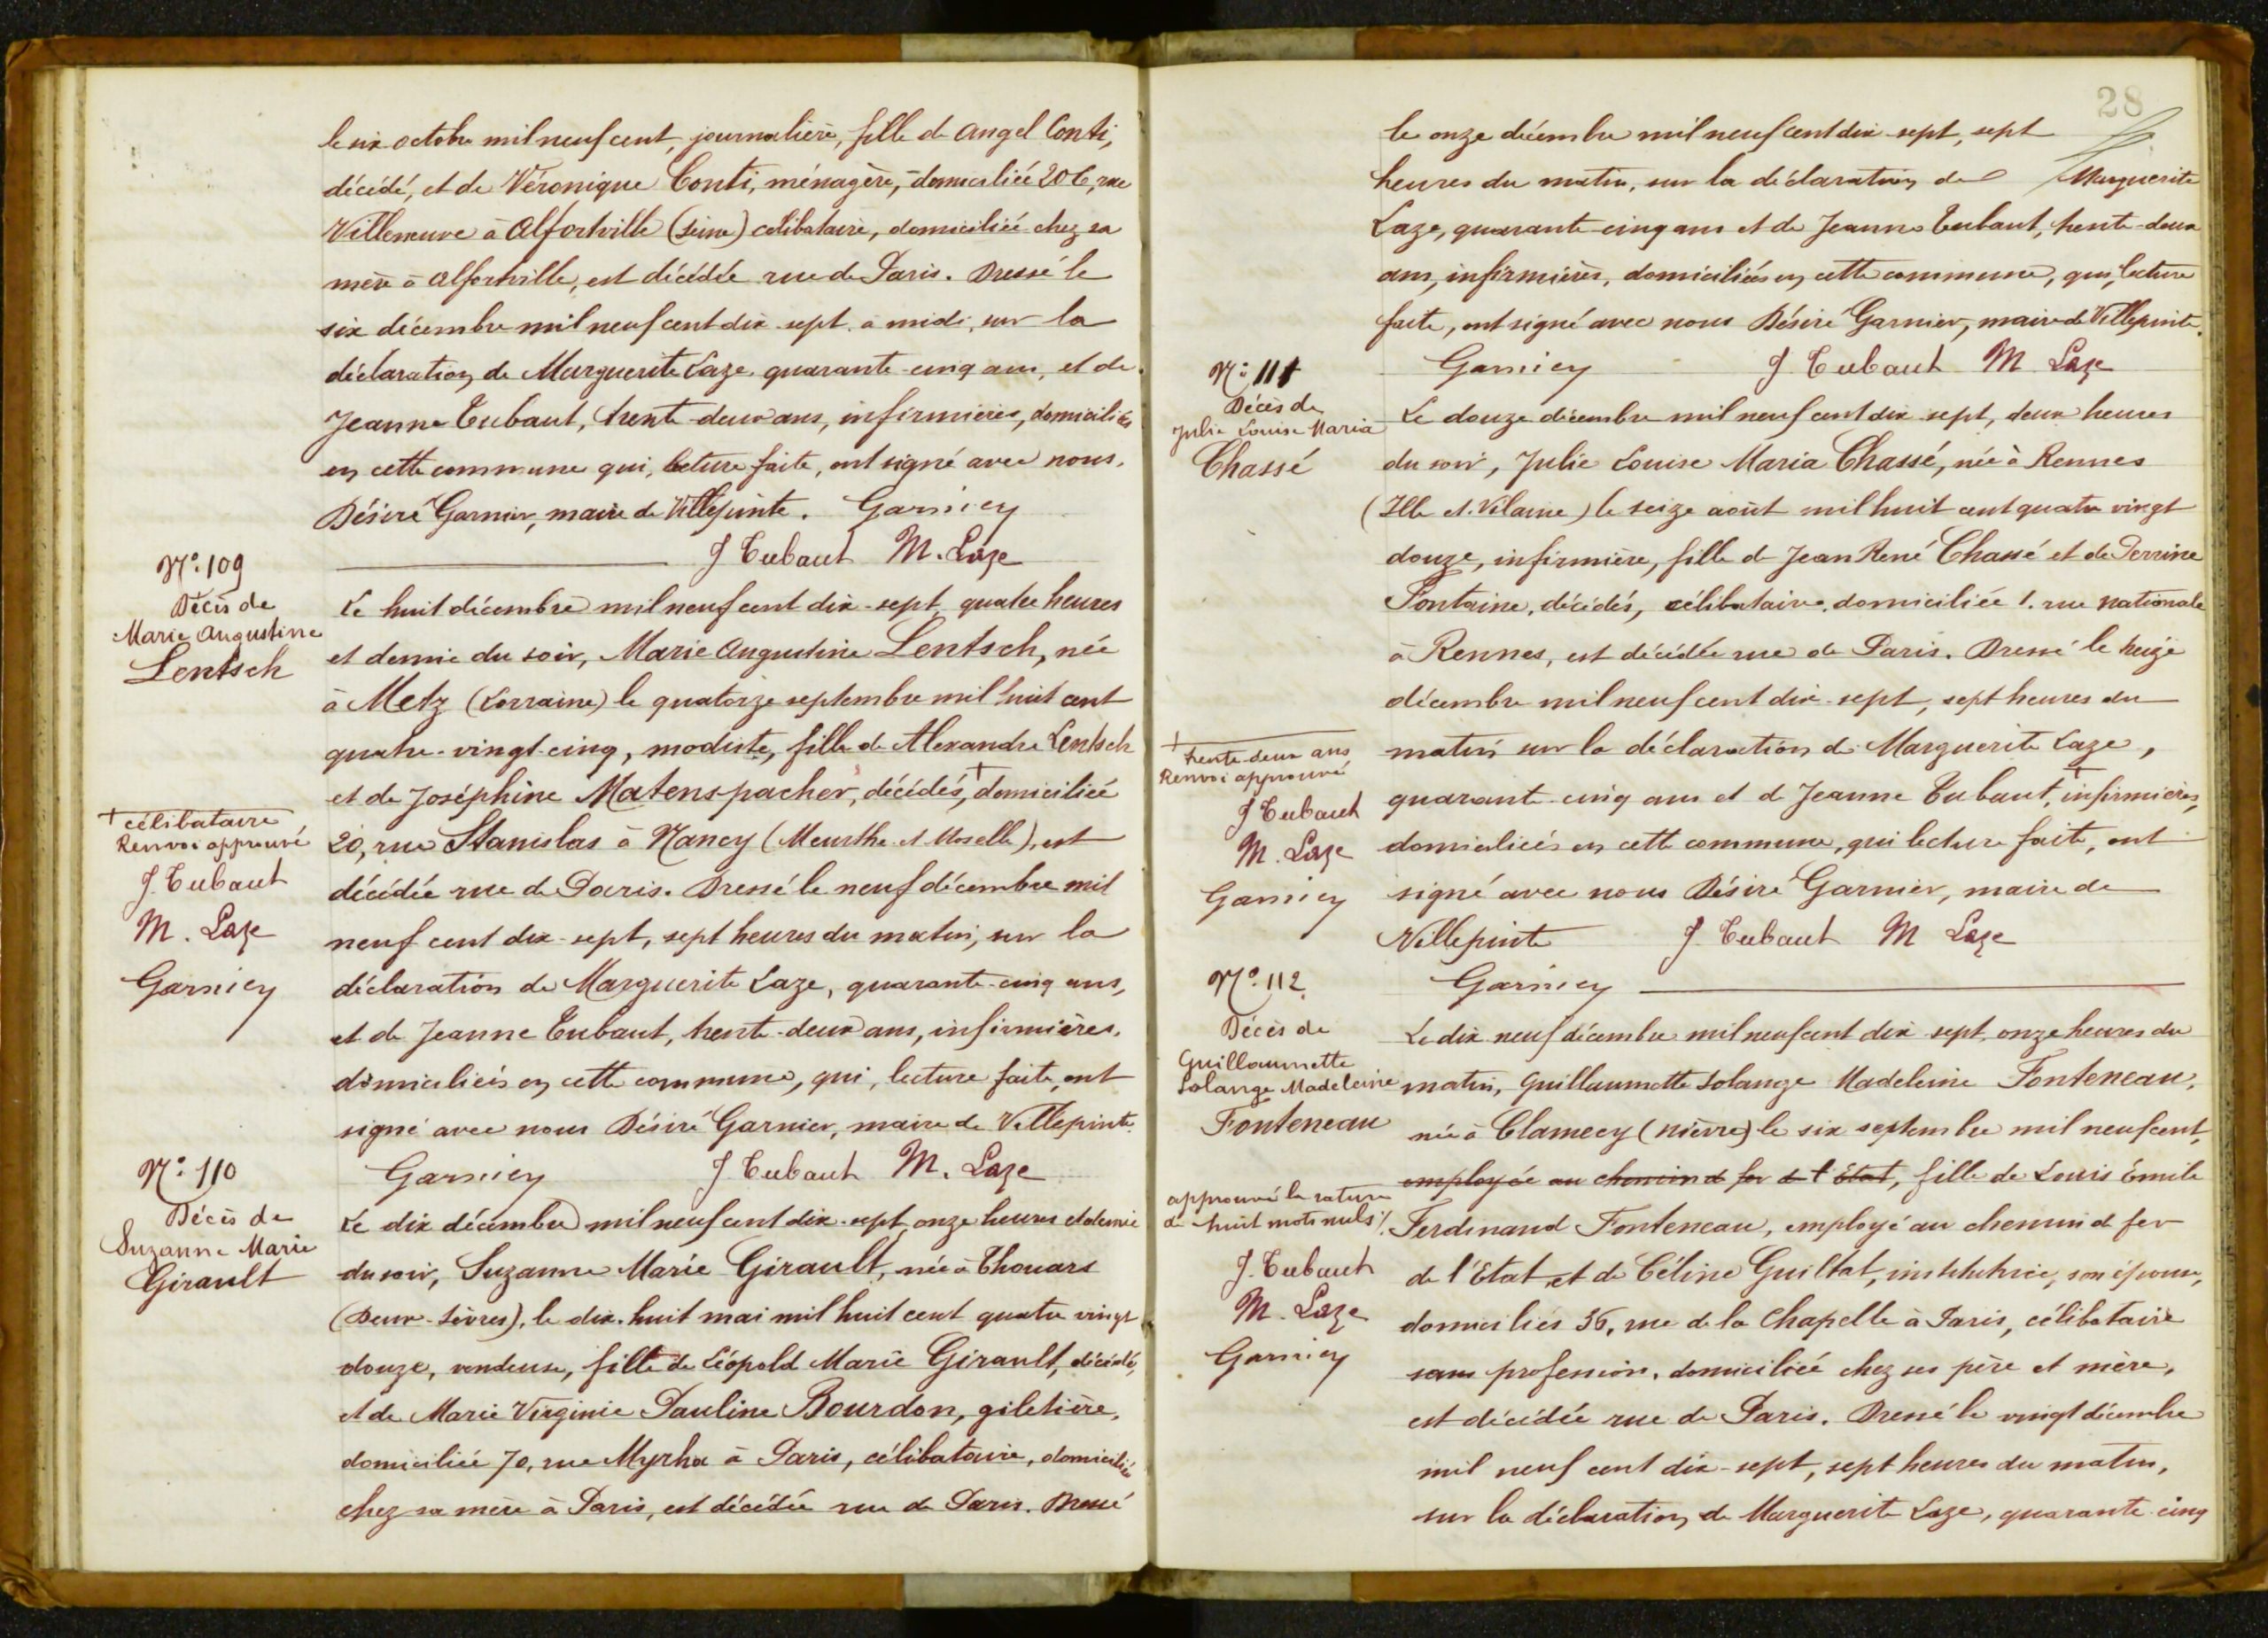 le six octobre mil neuf cent, journalière, fille de Angel Conti,
décédé, et de Véronique Conti, ménagère, domiciliée 206, rue
Villeneuve à Alfortville (Seine) célibataire, domiciliée chez sa
mère à Alfortville, est décédée rue de Paris. Dressé le
six décembre mil neuf cent dix-sept, à midi, sur la
déclaration de Marguerite Laze, quarante-cinq ans, et de
Jeanne Tubaut, trente-deux ans, infirmières, domiciliées
en cette commune qui, lecture faite, ont signé avec nous,
Désiré Garnier, maire de Villepinte. Garnier
J Tubaut M. Laze
N° 109
Décès de
Marie Augustine
Lentsch
Le huit décembre mil neuf cent dix-sept, quatre heures
et demie du soir, Marie Augustine Lentsch, née
à Metz (Lorraine) le quatorze septembre mil huit cent
quatre-vingt-cinq, modiste, fille de Alexandre Lentsch
et de Joséphine Matenspacher, décédés,† domiciliée
20, rue Stanislas à Nancy (Meurthe et Moselle), est
décédée rue de Paris. Dressé le neuf décembre mil
neuf cent dix-sept, sept heures du matin, sur la
déclaration de Marguerite Laze, quarante-cinq ans,
et de Jeanne Tubaut, trente-deux ans, infirmières,
domiciliées en cette commune, qui, lecture faite, ont
signé avec nous Désiré Garnier, maire de Villepinte.
Garnier J Tubaut M. Laze
† célibataire
Renvoi approuvé
J. Tubaut
M. Laze
Garnier
N° 110
Décès de
Suzanne Marie
Girault
Le dix décembre mil neuf cent dix-sept, onze heures et demie
du soir, Suzanne Marie Girault, née à Thouars
(Deux-Sèvres), le dix-huit mai mil huit cent quatre vingt
douze, vendeuse, fille de Léopold Marie Girault, décédé,
et de Marie Virginie Pauline Bourdon, giletière,
domiciliée 70, rue Myrha à Paris, célibataire, domiciliée
chez sa mère à Paris, est décédée rue de Paris. Dressé
28
le onze décembre mil neuf cent dix-sept, sept
heures du matin, sur la déclaration de Marguerite
Laze, quarante-cinq ans et de Jeanne Tubaut, trente-deux
ans, infirmières, domiciliées en cette commune, qui, lecture
faite, ont signé avec nous Désiré Garnier, maire de Villepinte.
Garnier J. Tubaut M. Laze
N° 111
Décès de
Julie Louise Maria
Chassé
Le douze décembre mil neuf cent dix-sept, deux heures
du soir, Julie Louise Maria Chassé, née à Rennes
(Ille et Vilaine) le seize août mil huit cent quatre vingt
douze, infirmière, fille de Jean René Chassé et de Perrine
Fontaine, décédés, célibataire, domiciliée 1, rue Nationale
à Rennes, est décédée rue de Paris. Dressé le treize
décembre mil neuf cent dix-sept, sept heures du
matin sur la déclaration de Marguerite Laze,
quarante-cinq ans et de Jeanne Tubaut,† infirmières,
domiciliées en cette commune, qui lecture faite, ont
signé avec nous Désiré Garnier, maire de
Villepinte J. Tubaut M Laze
Garnier
† trente-deux ans
Renvoi approuvé
J Tubaut
M. Laze
Garnier
N° 112
Décès de
Guillaumette
Solange Madeleine
Fonteneau
Le dix neuf décembre mil neuf cent dix sept, onze heures du
matin, Guillaumette Solange Madeleine Fonteneau,
née à Clamecy (Nièvre) le six septembre mil neuf cent,
employée au chemin de fer de l'Etat, fille de Louis Émile
Ferdinand Fonteneau, employé au chemin de fer
de l'Etat, et de Céline Guiltat, institutrice, son épouse,
domiciliés 36, rue de la Chapelle à Paris, célibataire
sans profession, domiciliée chez ses père et mère,
est décédée rue de Paris. Dressé le vingt décembre
mil neuf cent dix-sept, sept heures du matin,
sur la déclaration de Marguerite Laze, quarante-cinq
approuvé la rature
de huit mots nuls /.
J. Tubaut
M. Laze
Garnier